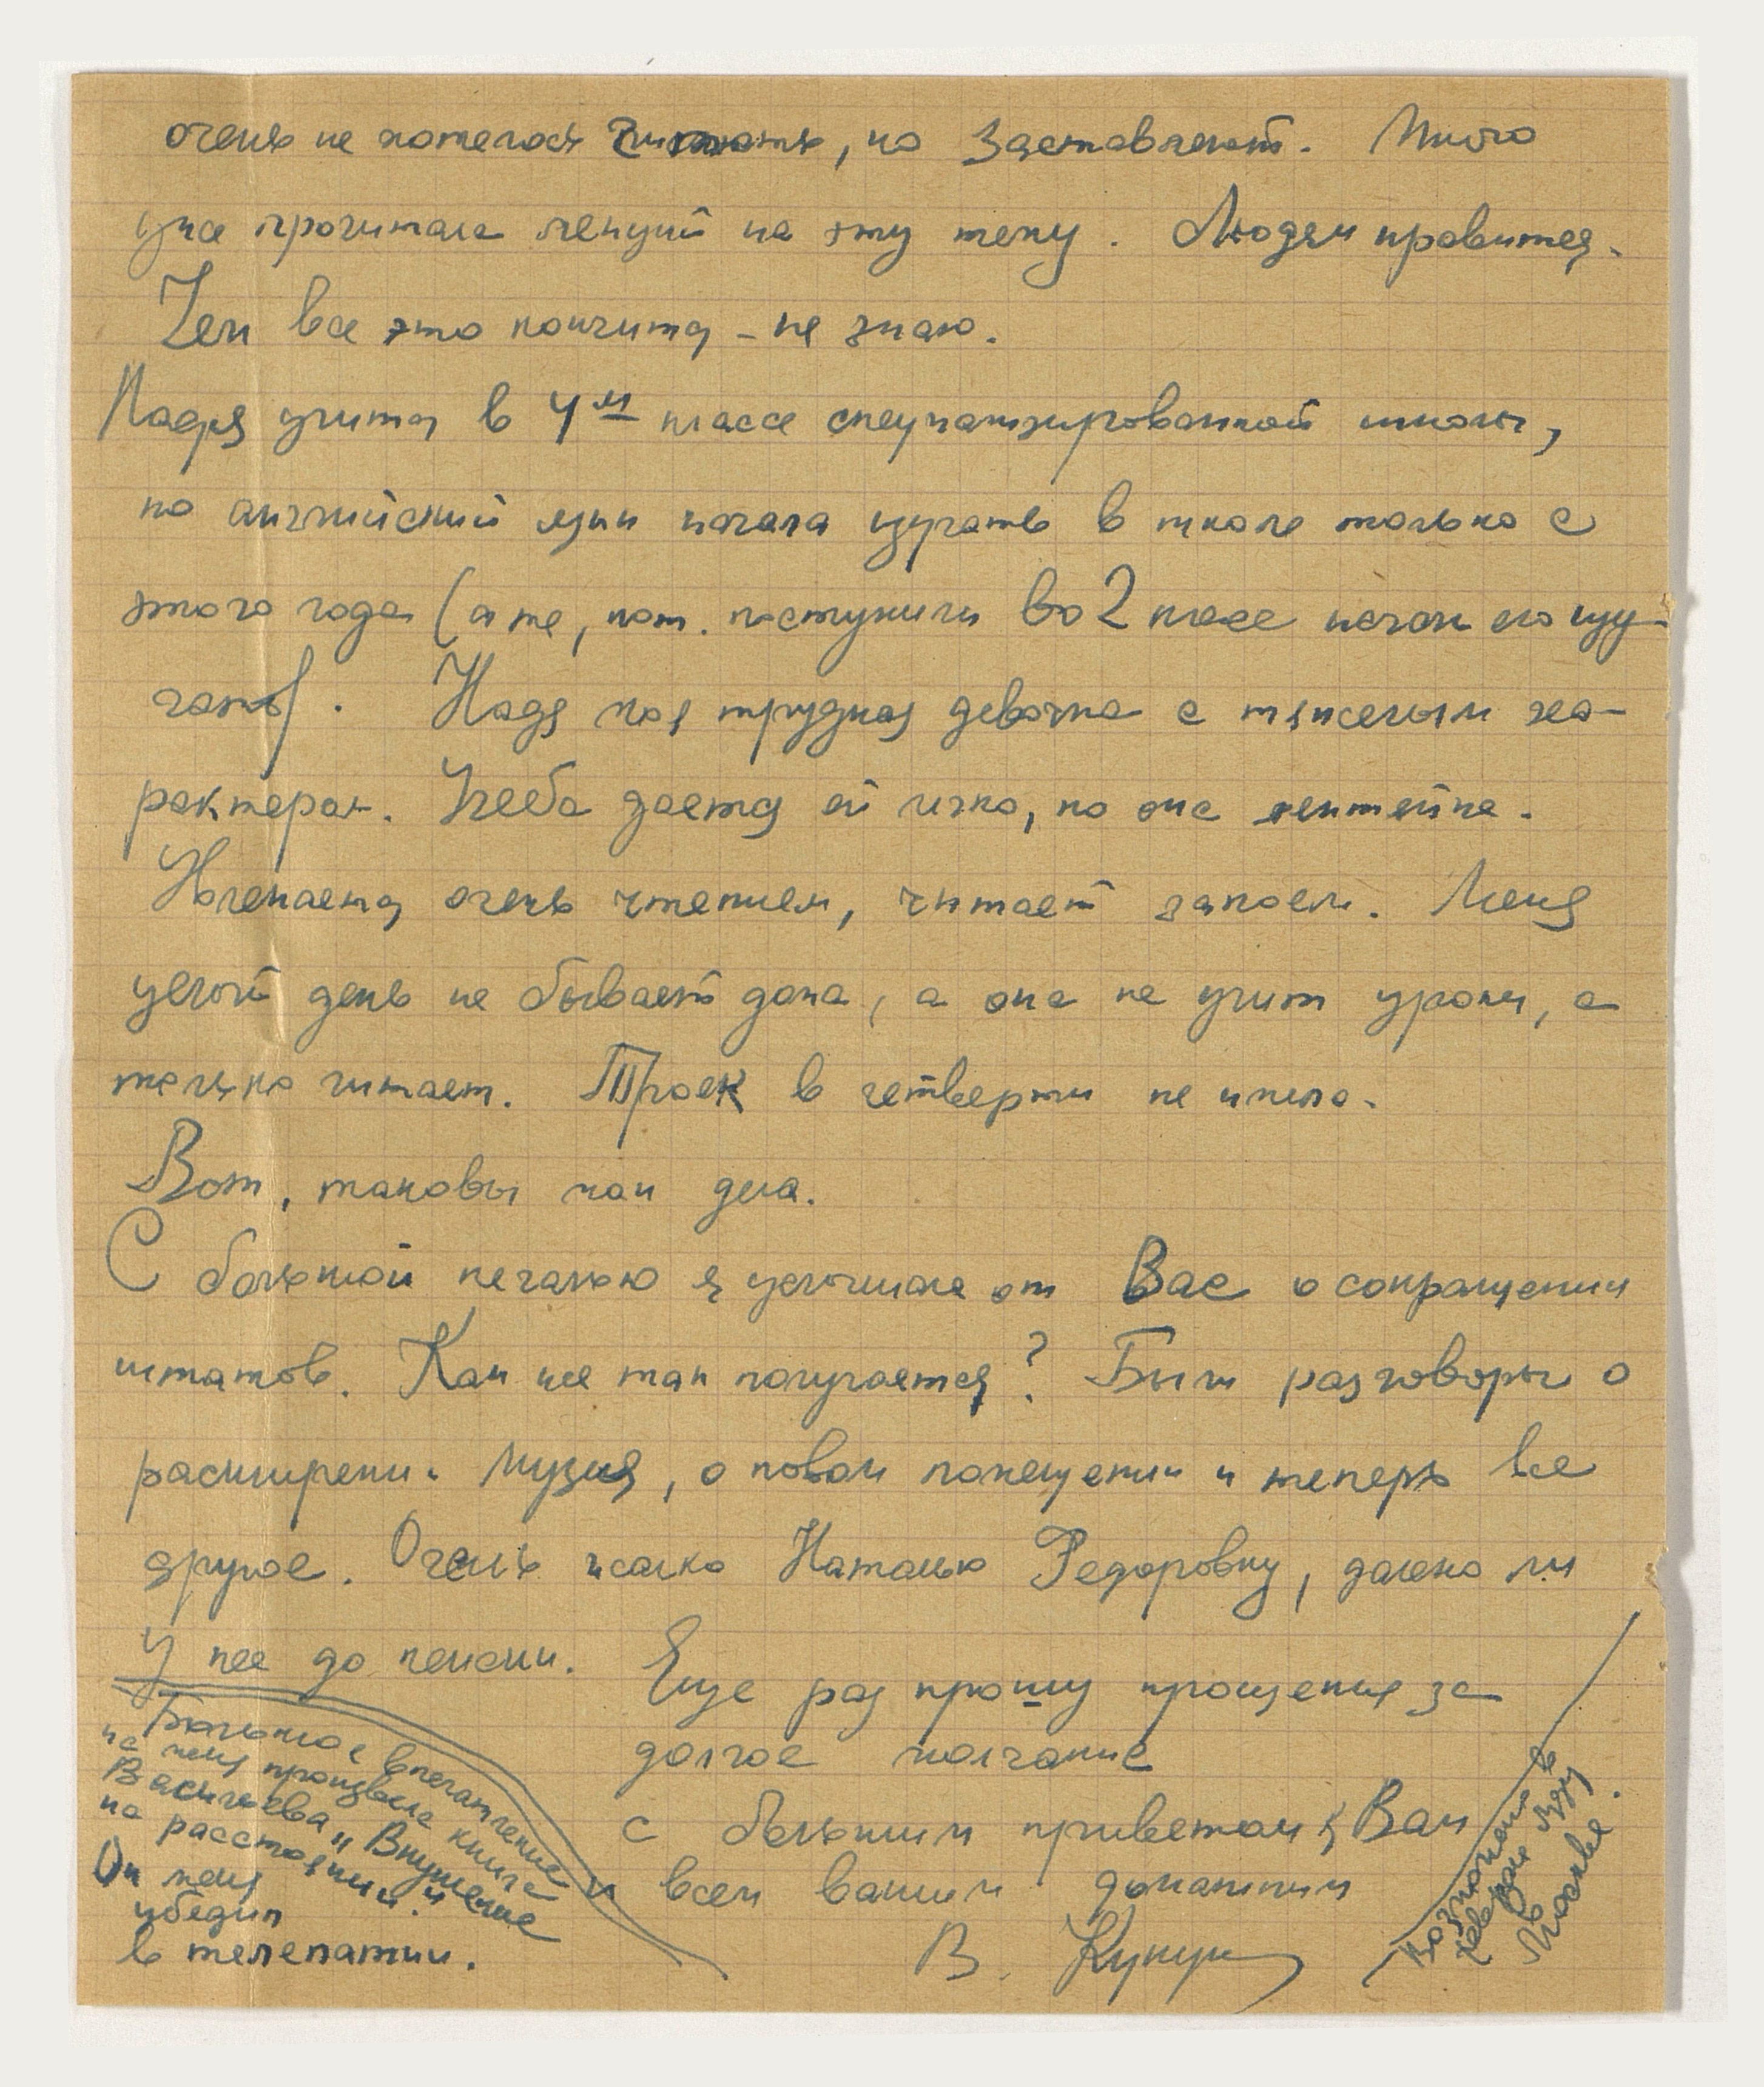 очень не хотелось читать, но заставляют. Много
уже прочитала лекций на эту тему. Людям нравится.
Чем все это кончится - не знаю.
Надя учится в 4м классе специализированной школы,
но английский язык начала изучать в школе только с
этого года (а те, кот. поступили во 2 класс начали его изу-
чать). Надя моя трудная девочка с тяжелым ха-
рактером. Учеба дается ей легко, но она лентяйка.
Увлекается очень чтением, читает запоем. Меня
целый день не бывает дома, а она не учит уроки, а
только читает. Троек в четверти не имела.
Вот, таковы мои дела.
С большой печалью я услышала от Вас о сокращении
штатов. Как же так получается? Были разговоры о
расширении Музея, о новом помещении и теперь все
другое. Очень жалко Наталью Федоровну, далеко ли
у нее до пенсии. Еще раз прошу прощения за
долгое молчание
с большим приветом Вам
всем вашим домашним
В. Кукук
Большое впечатление
на меня произвела книга
Васильева "Внушение
на расстоянии".
Он меня
убедил
в телепатии.
Возможно в
феврале буду
в Москве.